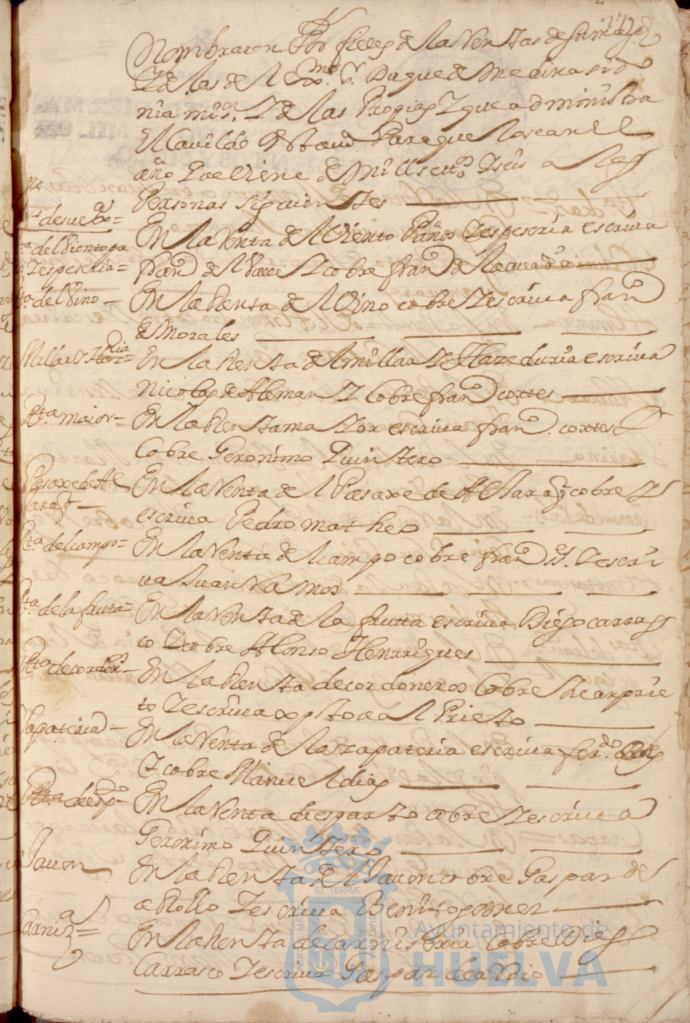 Nombraron Por fieles de las Rentas de su mag.d
Y de las de el Ex.mo S. Duque de Medina sido
nia mi s.r Y de las Propias Y que administra
El Cavildo Para que lo sean el
año Que Viene de mill sett.os Y seis a las
Personas Siguientes
En la Renta del Viento Paños Y espeseria escriva
Fran.co del Valle Y cobre fran.co de
R.ta del Vino =
En la Renta del Vino cobre Y escriva fran.co
de Morales
En la Renta de semillas Y Haze duria escriva
Nicolas de Aleman Y Cobre fran.co cortes
R.ta maior =
En la Renta maior escriva fran.co cortes Y
Cobre Geronimo Quintero
En la Renta del Pasaxe de Aljaraq cobre Y
escriva Pedro matheo
R.ta del campo =
En la Renta del campo cobre fran.co Y escri
va Juan Ramos
R.ta de la fruta =
En la Renta de la frutta escriva Diego carras
co Y cobre Alonso Henrriques
R.ta de cordon.s
En la Renta de cordoneros Cobre
to Y escriva Xptoval Prieto
Zapateria =
En la Renta de la Zapateria escriva
Y cobre Manuel dias
En la Renta de esparto cobre Y escriva
Geronimo Quintero
Javon
En la Renta del Javon cobre Gaspar de
Y escriva Benito
En la Renta de carniseria Cobre Diego
Carrasco Y escriva Gaspar
Ayuntamiento de
HUELVA